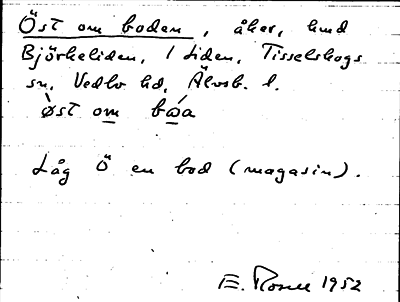 Öst om boden, åker, hmd
Björkeliden, 1 Liden, Tisselskogs
sn, Vedbo hd, Älvsb. l.
øst om bωa
Låg Ö en bod (magasin).
E. Rosell 1952